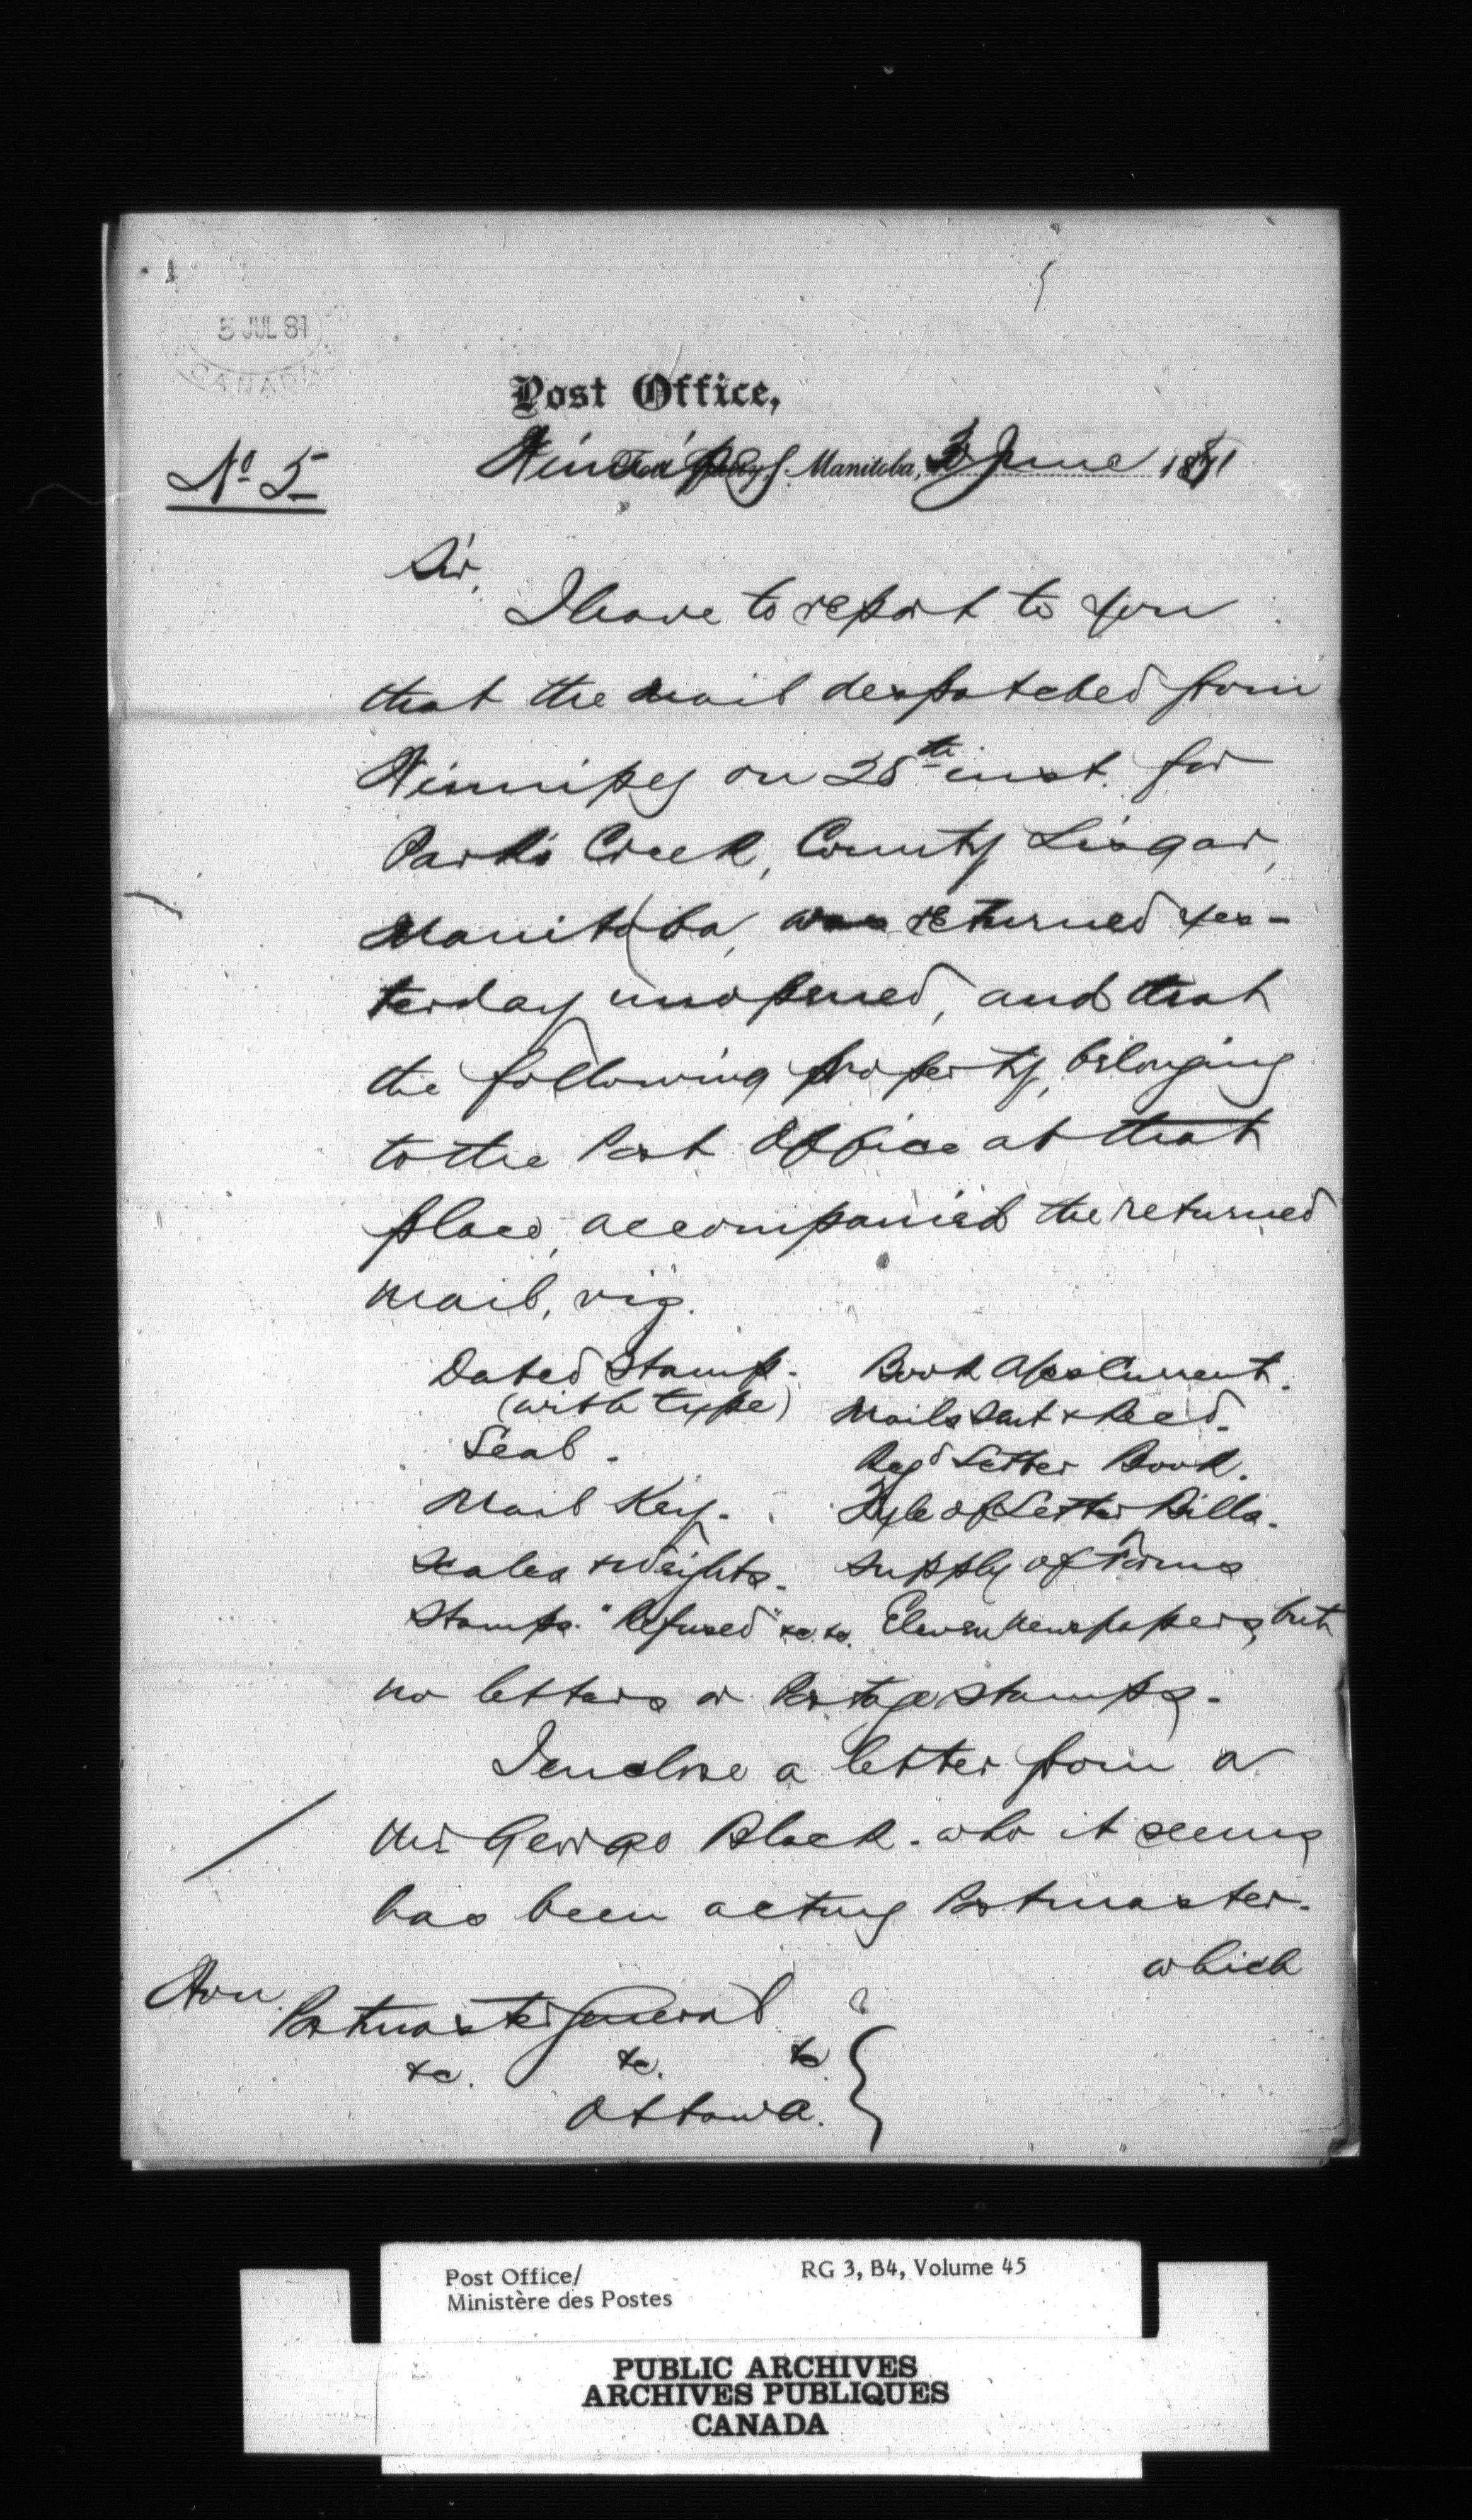 5 JUL 81
CANADA
Post Office,
Winnipeg, Manitoba, 30 June 1881
No 5
Sir,
I have to report to you
that the mail despatched from
Winnipeg on 28th inst. for
Park's Creek, County Lisgar,
Manitoba, was returned yes-
terday unopened, and that
the following property, belonging
to the Post Office at that
place, accompanied the returned
mail, viz.
Dated Stamp. Book a/cs Current.
(with type) Mails Sent & Recd.
Seal. Regd Letter Book.
Mail Key. Fyle of Letter Bills.
Scales & Weights. Supply of Forms
Stamps. "Refused" &c. &c. Eleven Newspapers, but
no letters or Postage Stamps.
I enclose a letter from a
Mr George Black. who it seems
has been acting Postmaster.
which
Hon.
Postmaster General
&c. &c. &c.
Ottawa.
Post Office/
Ministère des Postes
RG 3, B4, Volume 45
PUBLIC ARCHIVES
ARCHIVES PUBLIQUES
CANADA